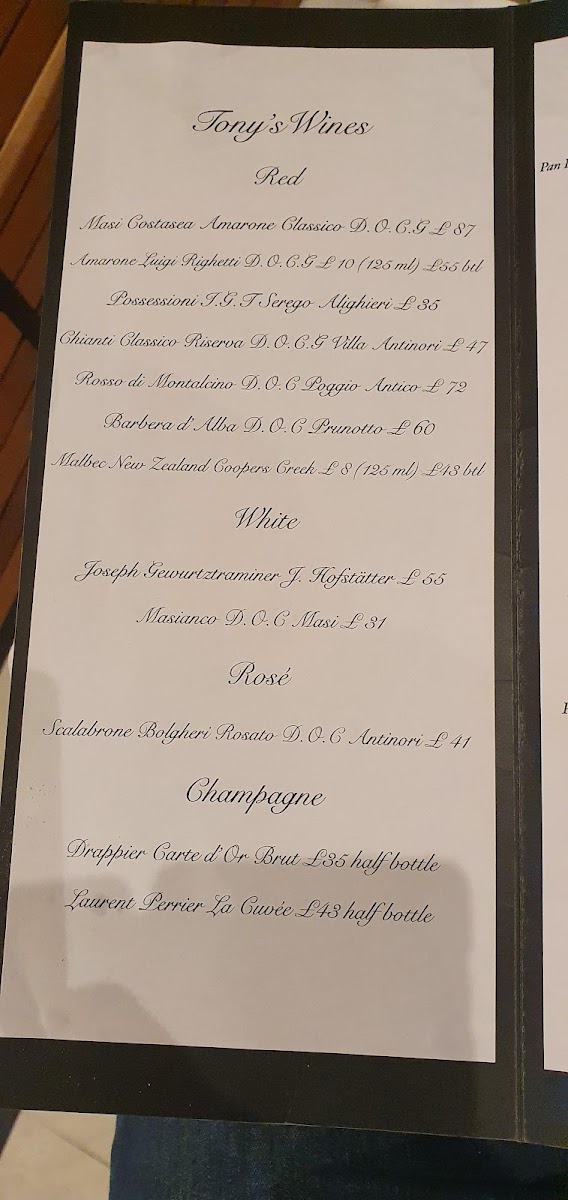 Tony's Wines
Red
Masi Costasea Amarone Classico D.O.C.G £ 87
Amarone Luigi Righetti D.O.C.G £ 10 (125 ml) £55 btl
Possessioni I.G.T Serego Alighieri £ 35
Chianti Classico Riserva D.O.C.G Villa Antinori £ 47
Rosso di Montalcino D.O.C Poggio Antico £ 72
Barbera d'Alba D.O.C Prunotto £ 60
Malbec New Zealand Coopers Creek £ 8 (125 ml) £43 btl
White
Joseph Gewurtztraminer J. Hofstätter £ 55
Masianco D.O.C Masi £ 31
Rosé
Scalabrone Bolgheri Rosato D.O.C Antinori £ 41
Champagne
Drappier Carte d'Or Brut £35 half bottle
Laurent Perrier La Cuvée £43 half bottle
Pan